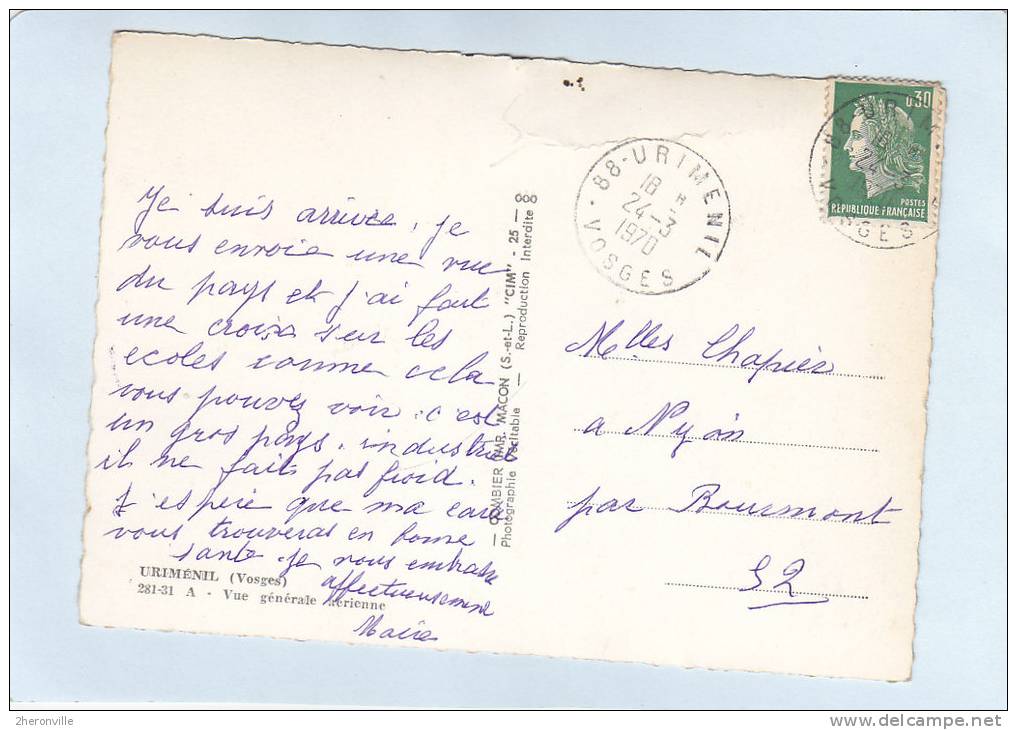 Je suis arrivée, je
vous envoie une vue
du pays et j'ai fait
une croix sur les
ecoles comme cela
vous pouvez voir c'est
un gros pays. industriel
il ne fait pas froid.
J'espère que ma carte
vous trouveras en bonne
santé je vous embrasse
affectueusement
URIMÉNIL (Vosges)
281-31 A - Vue générale aérienne
— COMBIER IMP. MACON (S.-et-L.) "CIM" - 25 —
Photographie Véritable — Reproduction Interdite
88-URIMENIL
18 H
24-3
1970
VOSGES
0,30
POSTES
RÉPUBLIQUE FRANÇAISE
Melles Chapier
a Nijon
par Bourmont
52
2heronville
http://www.delcampe.net